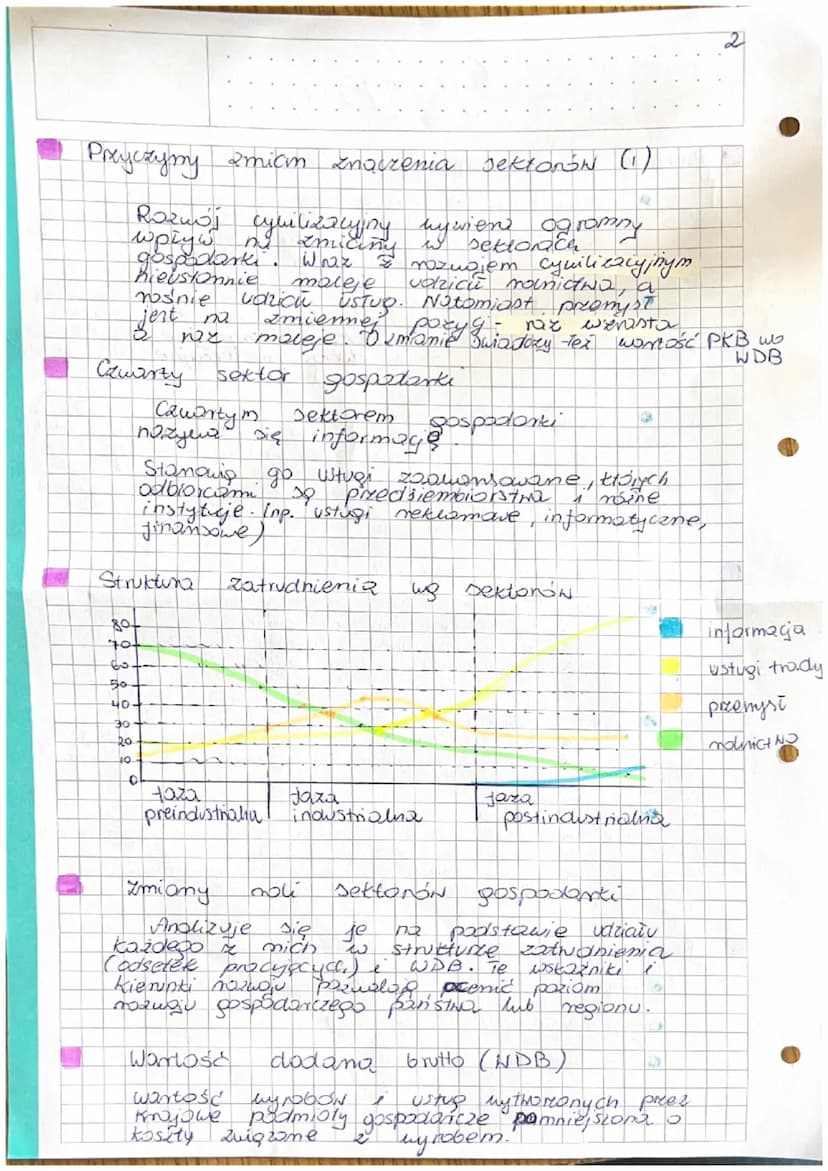 2
Przyczyny zmian znaczenia sektorów (1)
Rozwój cywilizacyjny wywiera ogromny
wpływ na zmiany w sektorach
gospodarki. Wraz z rozwojem cywilizacyjnym
nieustannie maleje udział rolnictwa, a
rośnie udział usług. Natomiast przemysł
jest na zmiennej pozycji - raz wzrasta
a raz maleje. O zmianie świadczy też wartość PKB wo
WDB
Czwarty sektor gospodarki
Czwartym sektorem gospodarki
nazywa się informację.
Stanowią go usługi zaawansowane, których
odbiorcami są przedsiębiorstwa i różne
instytucje. (np. usługi reklamowe, informatyczne,
finansowe)
Struktura zatrudnienia wg sektorów
80
70
60
50
40
30
20
10
0
informacja
usługi trady
przemysł
rolnictwo
faza faza faza
preindustrialna industrialna postindustrialna
Zmiany roli sektorów gospodarki
Analizuje się je na podstawie udziału
każdego z nich w strukturze zatrudnienia
(odsetek pracujących) i WDB. Te wskaźniki i
kierunki rozwoju pozwalają ocenić poziom
rozwoju gospodarczego państwa lub regionu.
Wartość dodana brutto (WDB)
wartość wyrobów i usług wytworzonych przez
krajowe podmioty gospodarcze pomniejszona o
koszty związane z wyrobem.